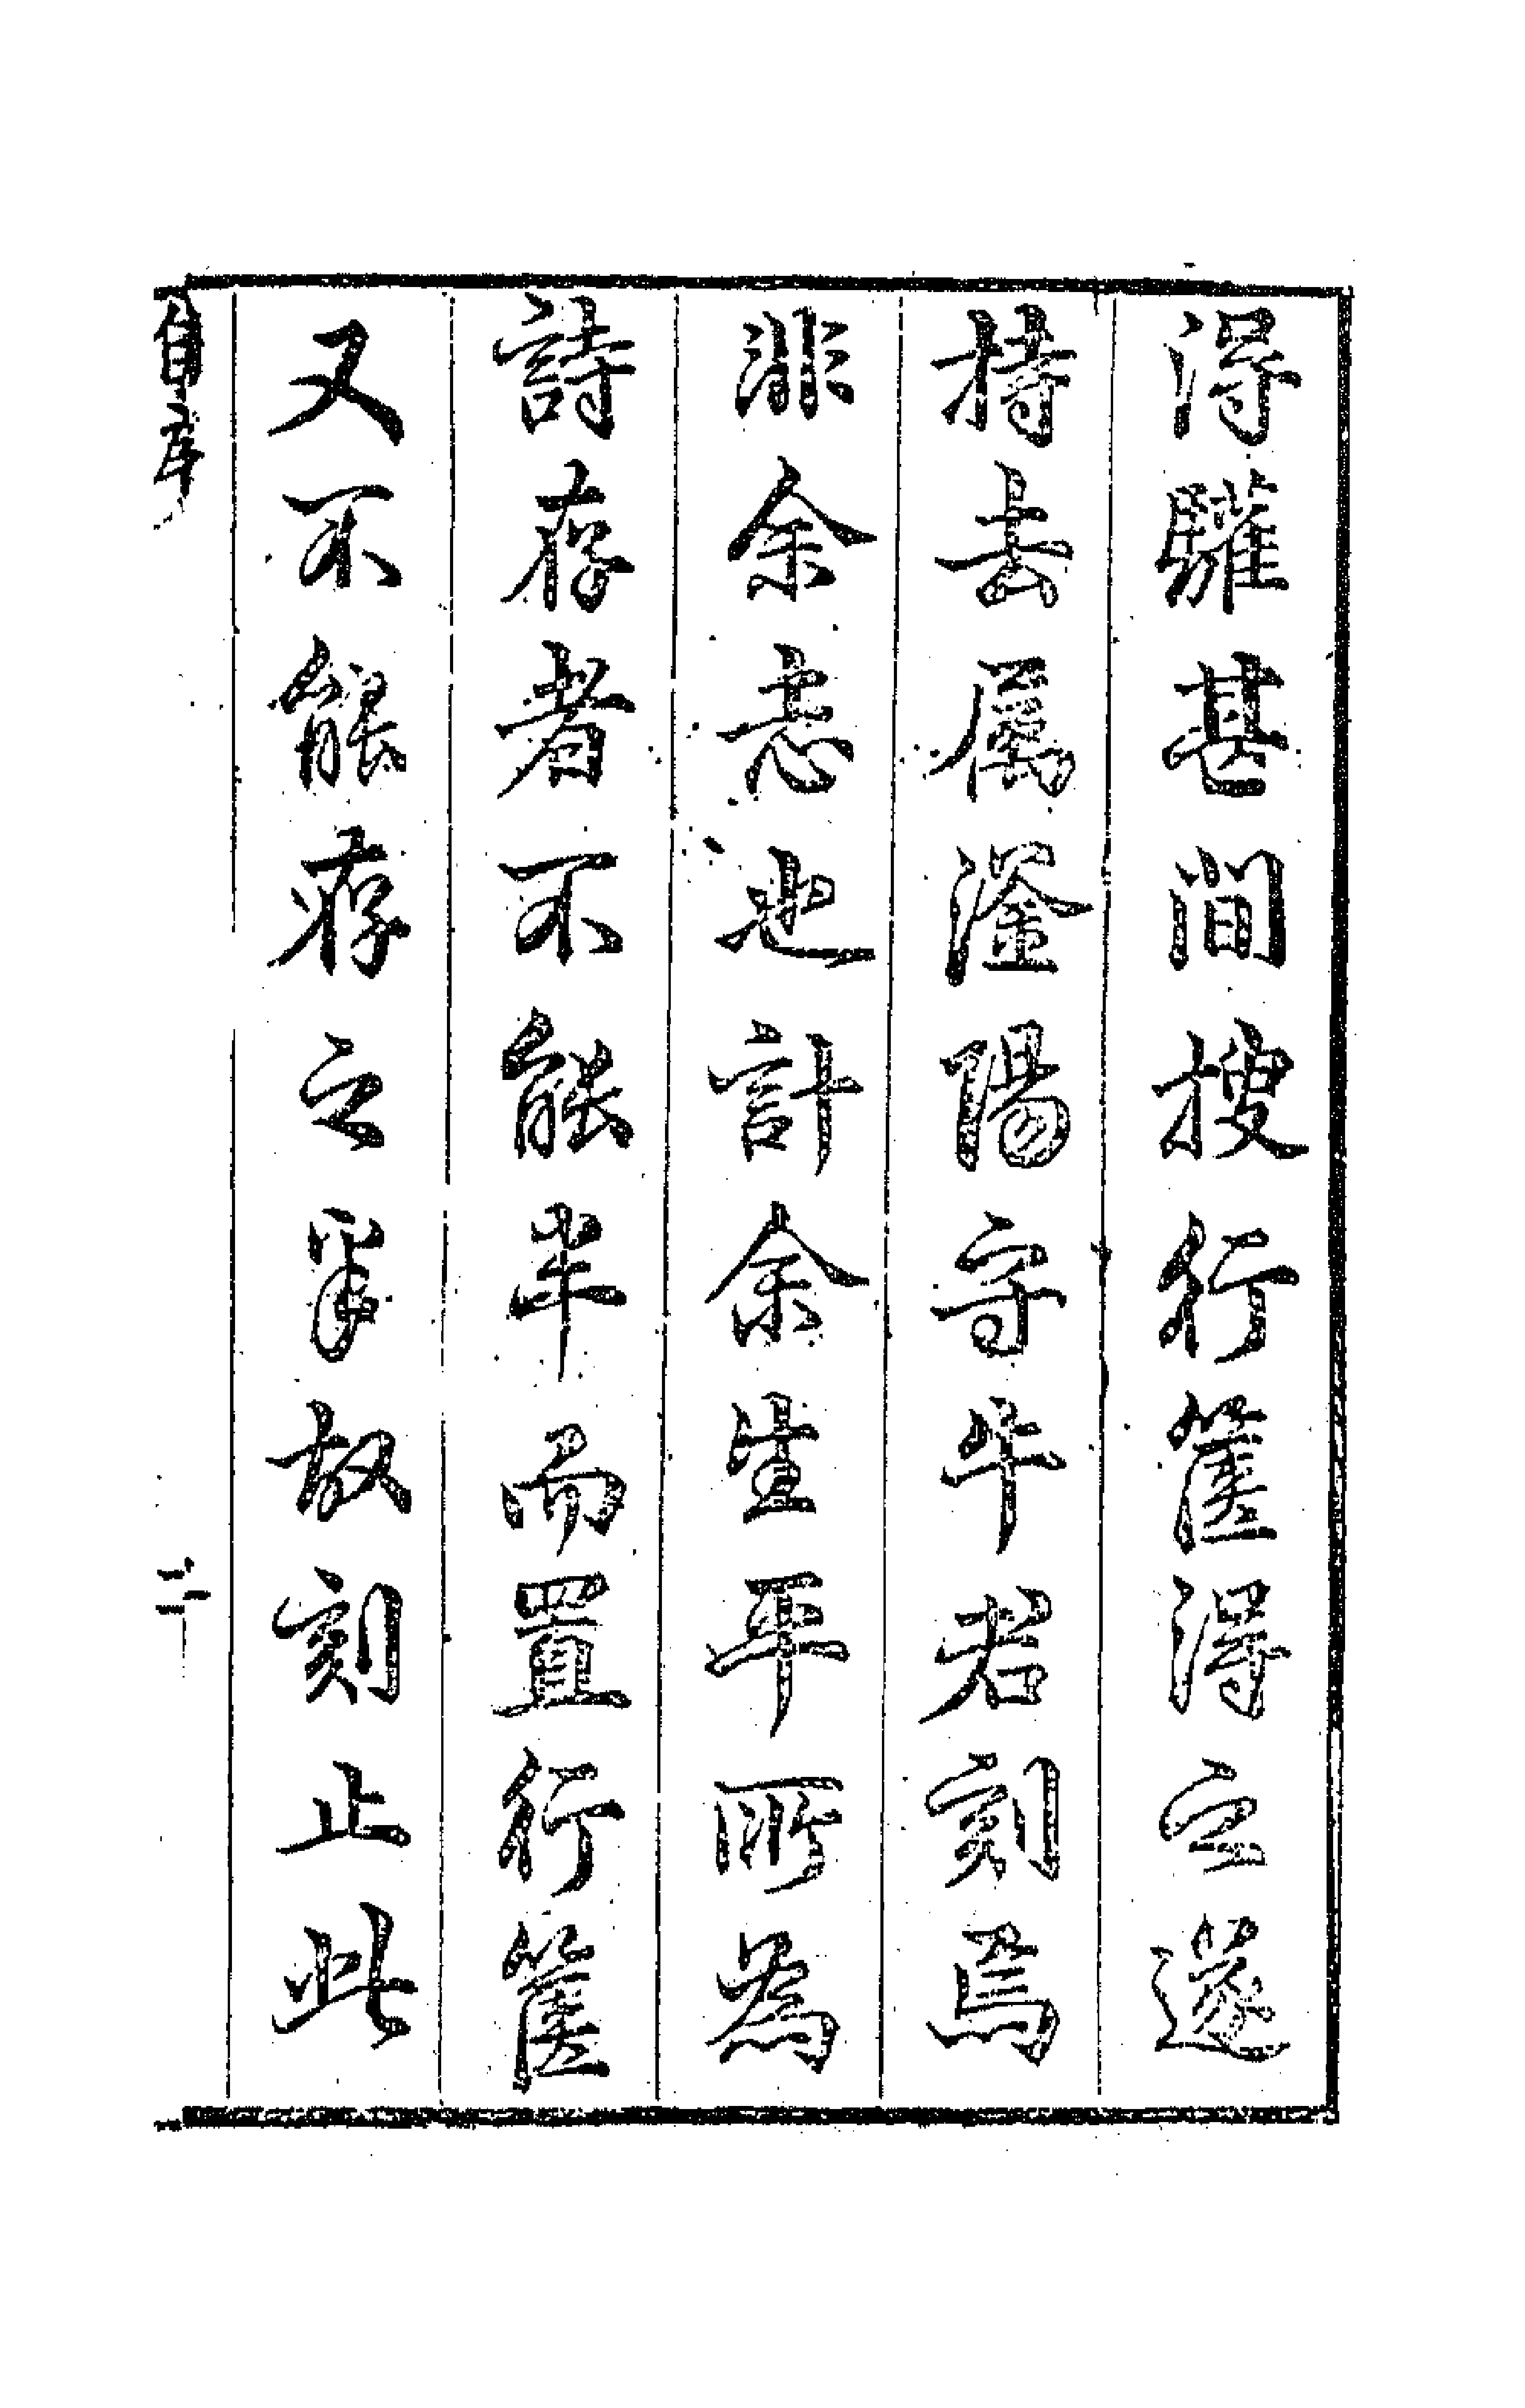 得驩甚間搜行篋得之遂
持去属滏陽守牛君刻焉
非余志也計余生平所為
詩存者不能半而置行篋
又不能存之半故刻止此
自序